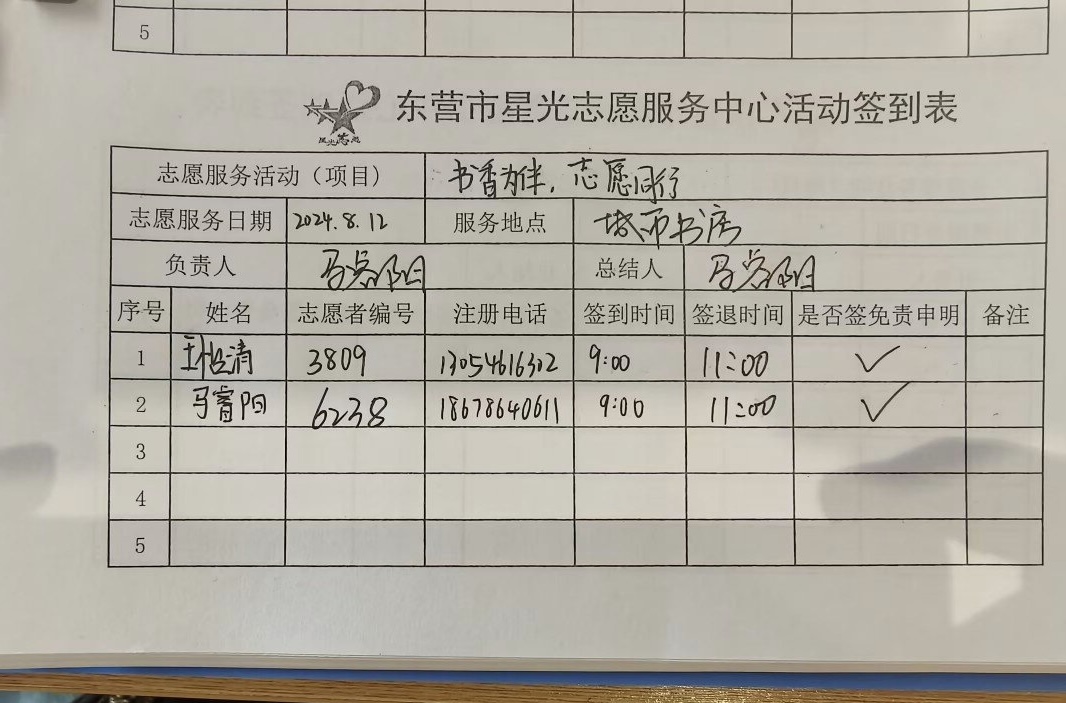 5
星光志愿
东营市星光志愿服务中心活动签到表
志愿服务活动（项目） 书香为伴，志愿同行
志愿服务日期 2024.8.12 服务地点 城市书房
负责人 马睿阳 总结人 马睿阳
序号 姓名 志愿者编号 注册电话 签到时间 签退时间 是否签免责申明 备注
1 3809 13054616302 9:00 11:00 ✓
2 马睿阳 6238 18678640611 9:00 11:00 ✓
3
4
5